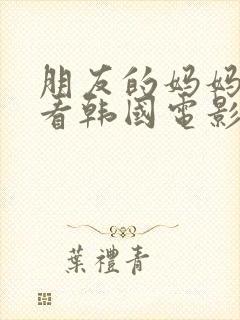 朋友的妈妈
看韩国电影
葉禮青